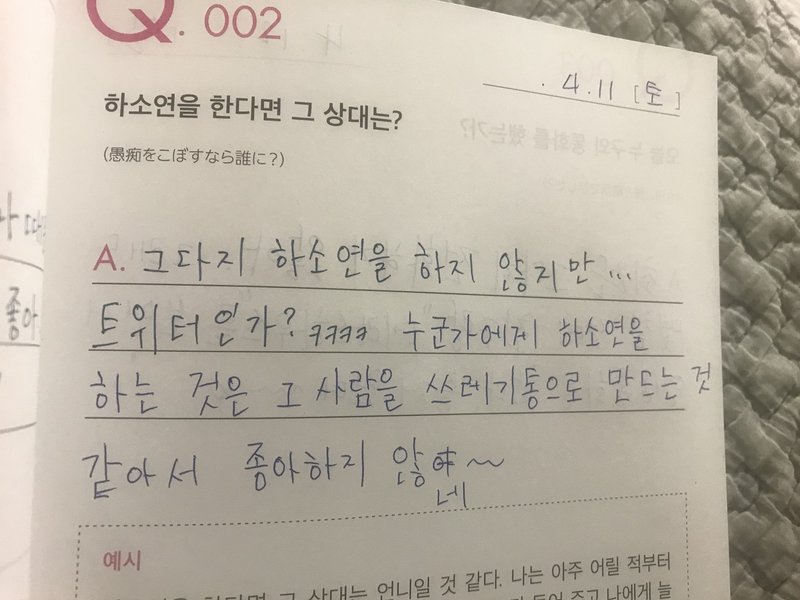 Q. 002
4.11 [토]
하소연을 한다면 그 상대는?
(愚痴をこぼすなら誰に?)
A. 그다지 하소연을 하지 않지만...
트위터인가? ㅋㅋㅋㅋ 누군가에게 하소연을
하는 것은 그 사람을 쓰레기통으로 만드는 것
같아서 좋아하지 않
네~
예시
한다면 그 상대는 언니일 것 같다. 나는 아주 어릴 적부터
들어 주고 나에게 늘
좋아